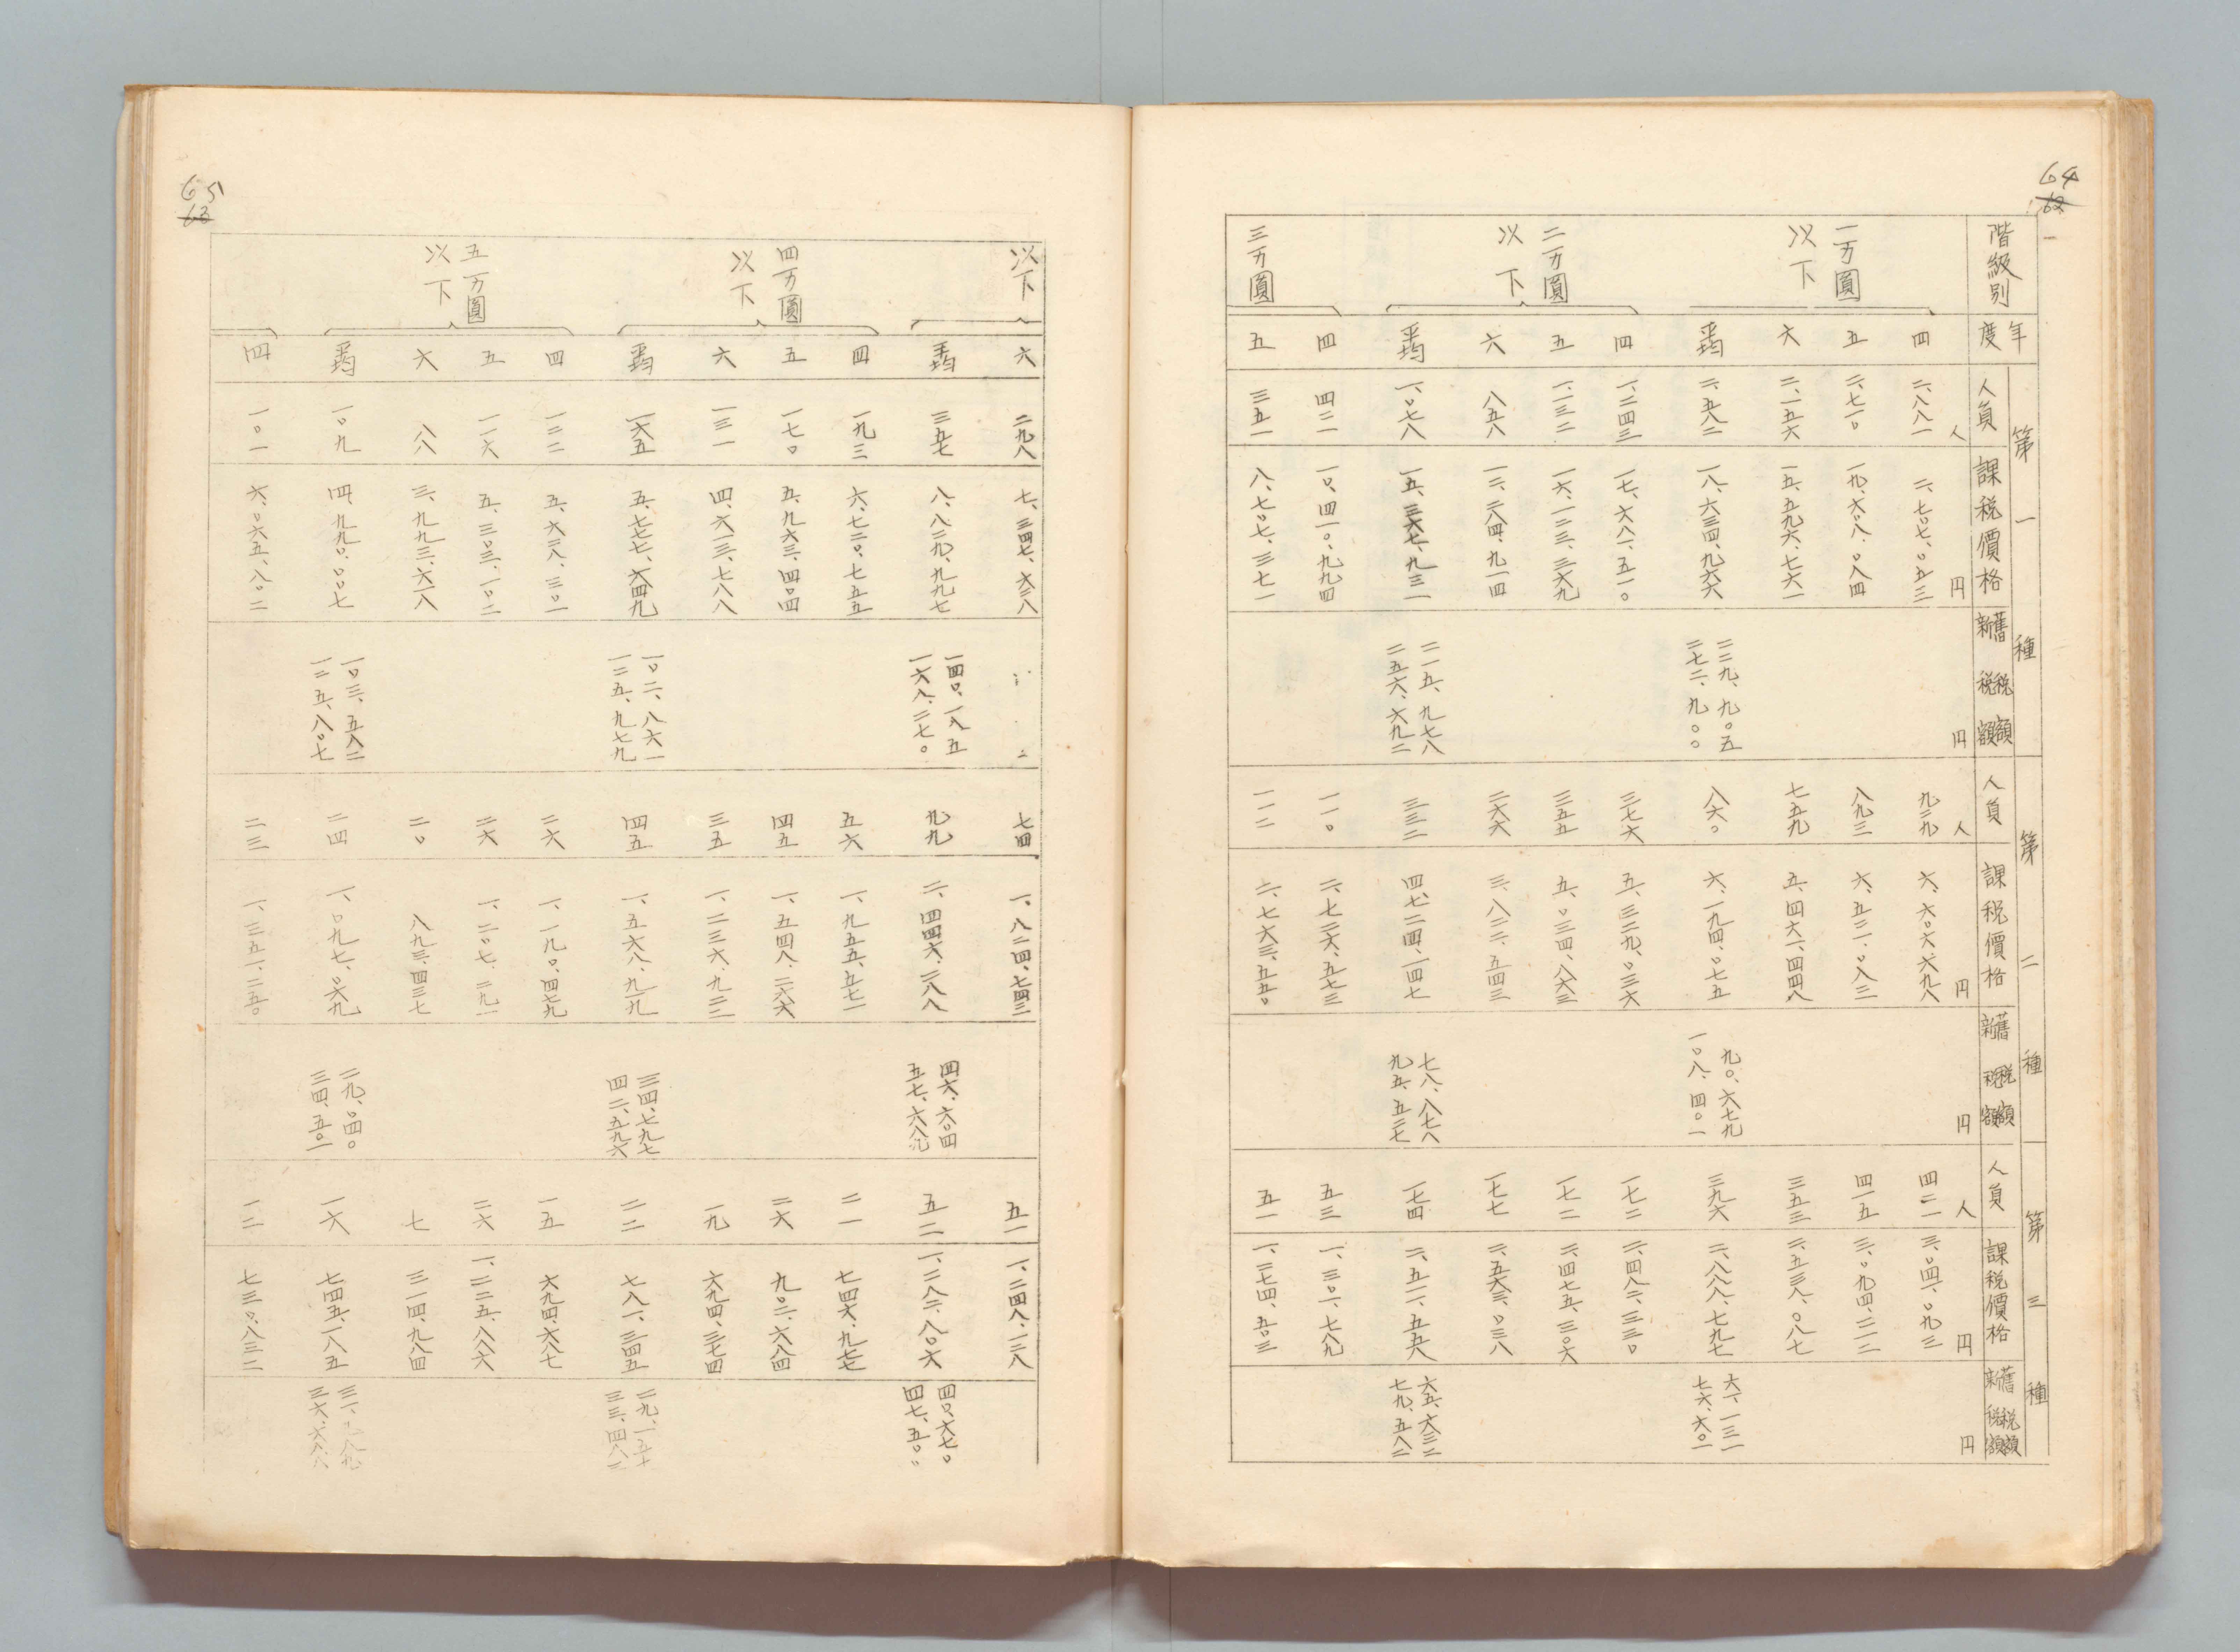 64
62
階級別 年度 第一種 人員 課税價格 舊税額 新税額 第二種 人員 課税價格 舊税額 新税額 第三種 人員 課税價格 舊税額 新税額
人 円 円 人 円 円 人 円 円
一万圓以下
四 二、八八一 二、七〇七、〇五三 九二九 六、六〇六、六九八 四二一 三、〇四一、〇九三
五 二、七一〇 一九、六〇八、〇八四 八九三 六、五二一、〇八三 四一五 三、〇九四、二一二
六 二、一五六 一五、五九六、七六一 七五九 五、四六一、四四八 三五三 二、五三八、〇八七
平均 二、五八二 一八、六三四、九六六 二二九、九〇五 二七二、九〇〇 八六〇 六、一九四、〇七五 九〇、六七九 一〇八、四〇一 三九六 二、八八八、七九七 六一、一三一 七六、六〇一
二万圓以下
四 一、二四三 一七、六八一、五一〇 三七六 五、三二九、〇三六 一七二 二、四八二、三三〇
五 一、一三二 一六、一二三、三六九 三五五 五、〇三四、八六三 一七二 二、四七五、三〇六
六 八五八 一二、二八四、九一四 二六六 三、八二二、五四三 一七七 二、五六三、〇三八
平均 一、〇七八 一五、三六七、九三一 二一五、九七八 二五六、六九二 三三二 四、七二四、一四七 七八、八七八 九五、五三七 一七四 二、五一一、五五八 六五、六三二 七九、五八二
三万圓
四 四二二 一〇、四一〇、九九四 一一〇 二、七二六、五七三 五三 一、三〇一、七八九
五 三五一 八、七〇七、三七一 一一二 二、七六三、五五〇 五一 一、二七四、五〇三
65
63
以下
六 二九八 七、三四七、六二八 七四 一、八二四、七四三 五一 一、二四八、一二八
平均 三五七 八、八二九、九九七 一四〇、一八五 一六八、二七〇 九九 二、四四六、二八八 四六、六〇四 五七、六八九 五二 一、二八二、八〇六 四〇、六七〇 四七、五〇
四万圓以下
四 一九三 六、七二〇、七五五 五六 一、九五五、五七一 二一 七四六、九七七
五 一七〇 五、九六三、四〇四 四五 一、五四八、二六六 二六 九〇二、六八四
六 一三一 四、六一三、七八八 三五 一、二三六、九二二 一九 六九四、三七四
平均 一六五 五、七七七、六四九 一〇二、八六一 一二五、九七九 四五 一、五六八、九一九 三四、七九七 四二、五九六 二二 七八一、三四五 二九、一五 三三、四八一
五万圓以下
四 一二二 五、六二八、三〇一 二六 一、一九〇、四七九 一五 六九四、六八七
五 一一六 五、三〇三、一〇二 二六 一、二〇七、二九一 二六 一、二二五、八六六
六 八八 三、九九三、六一八 二〇 八九三、四三七 七 三一四、九八四
平均 一〇九 四、九九〇、〇〇七 一〇三、五八二 一二五、八〇七 二四 一、〇九七、〇六九 二九、〇四〇 三四、五〇一 一六 七四五、一八五 三六、六八八
四 一〇一 六、〇六五、八〇二 二三 一、三五一、二五〇 一二 七三〇、八三二